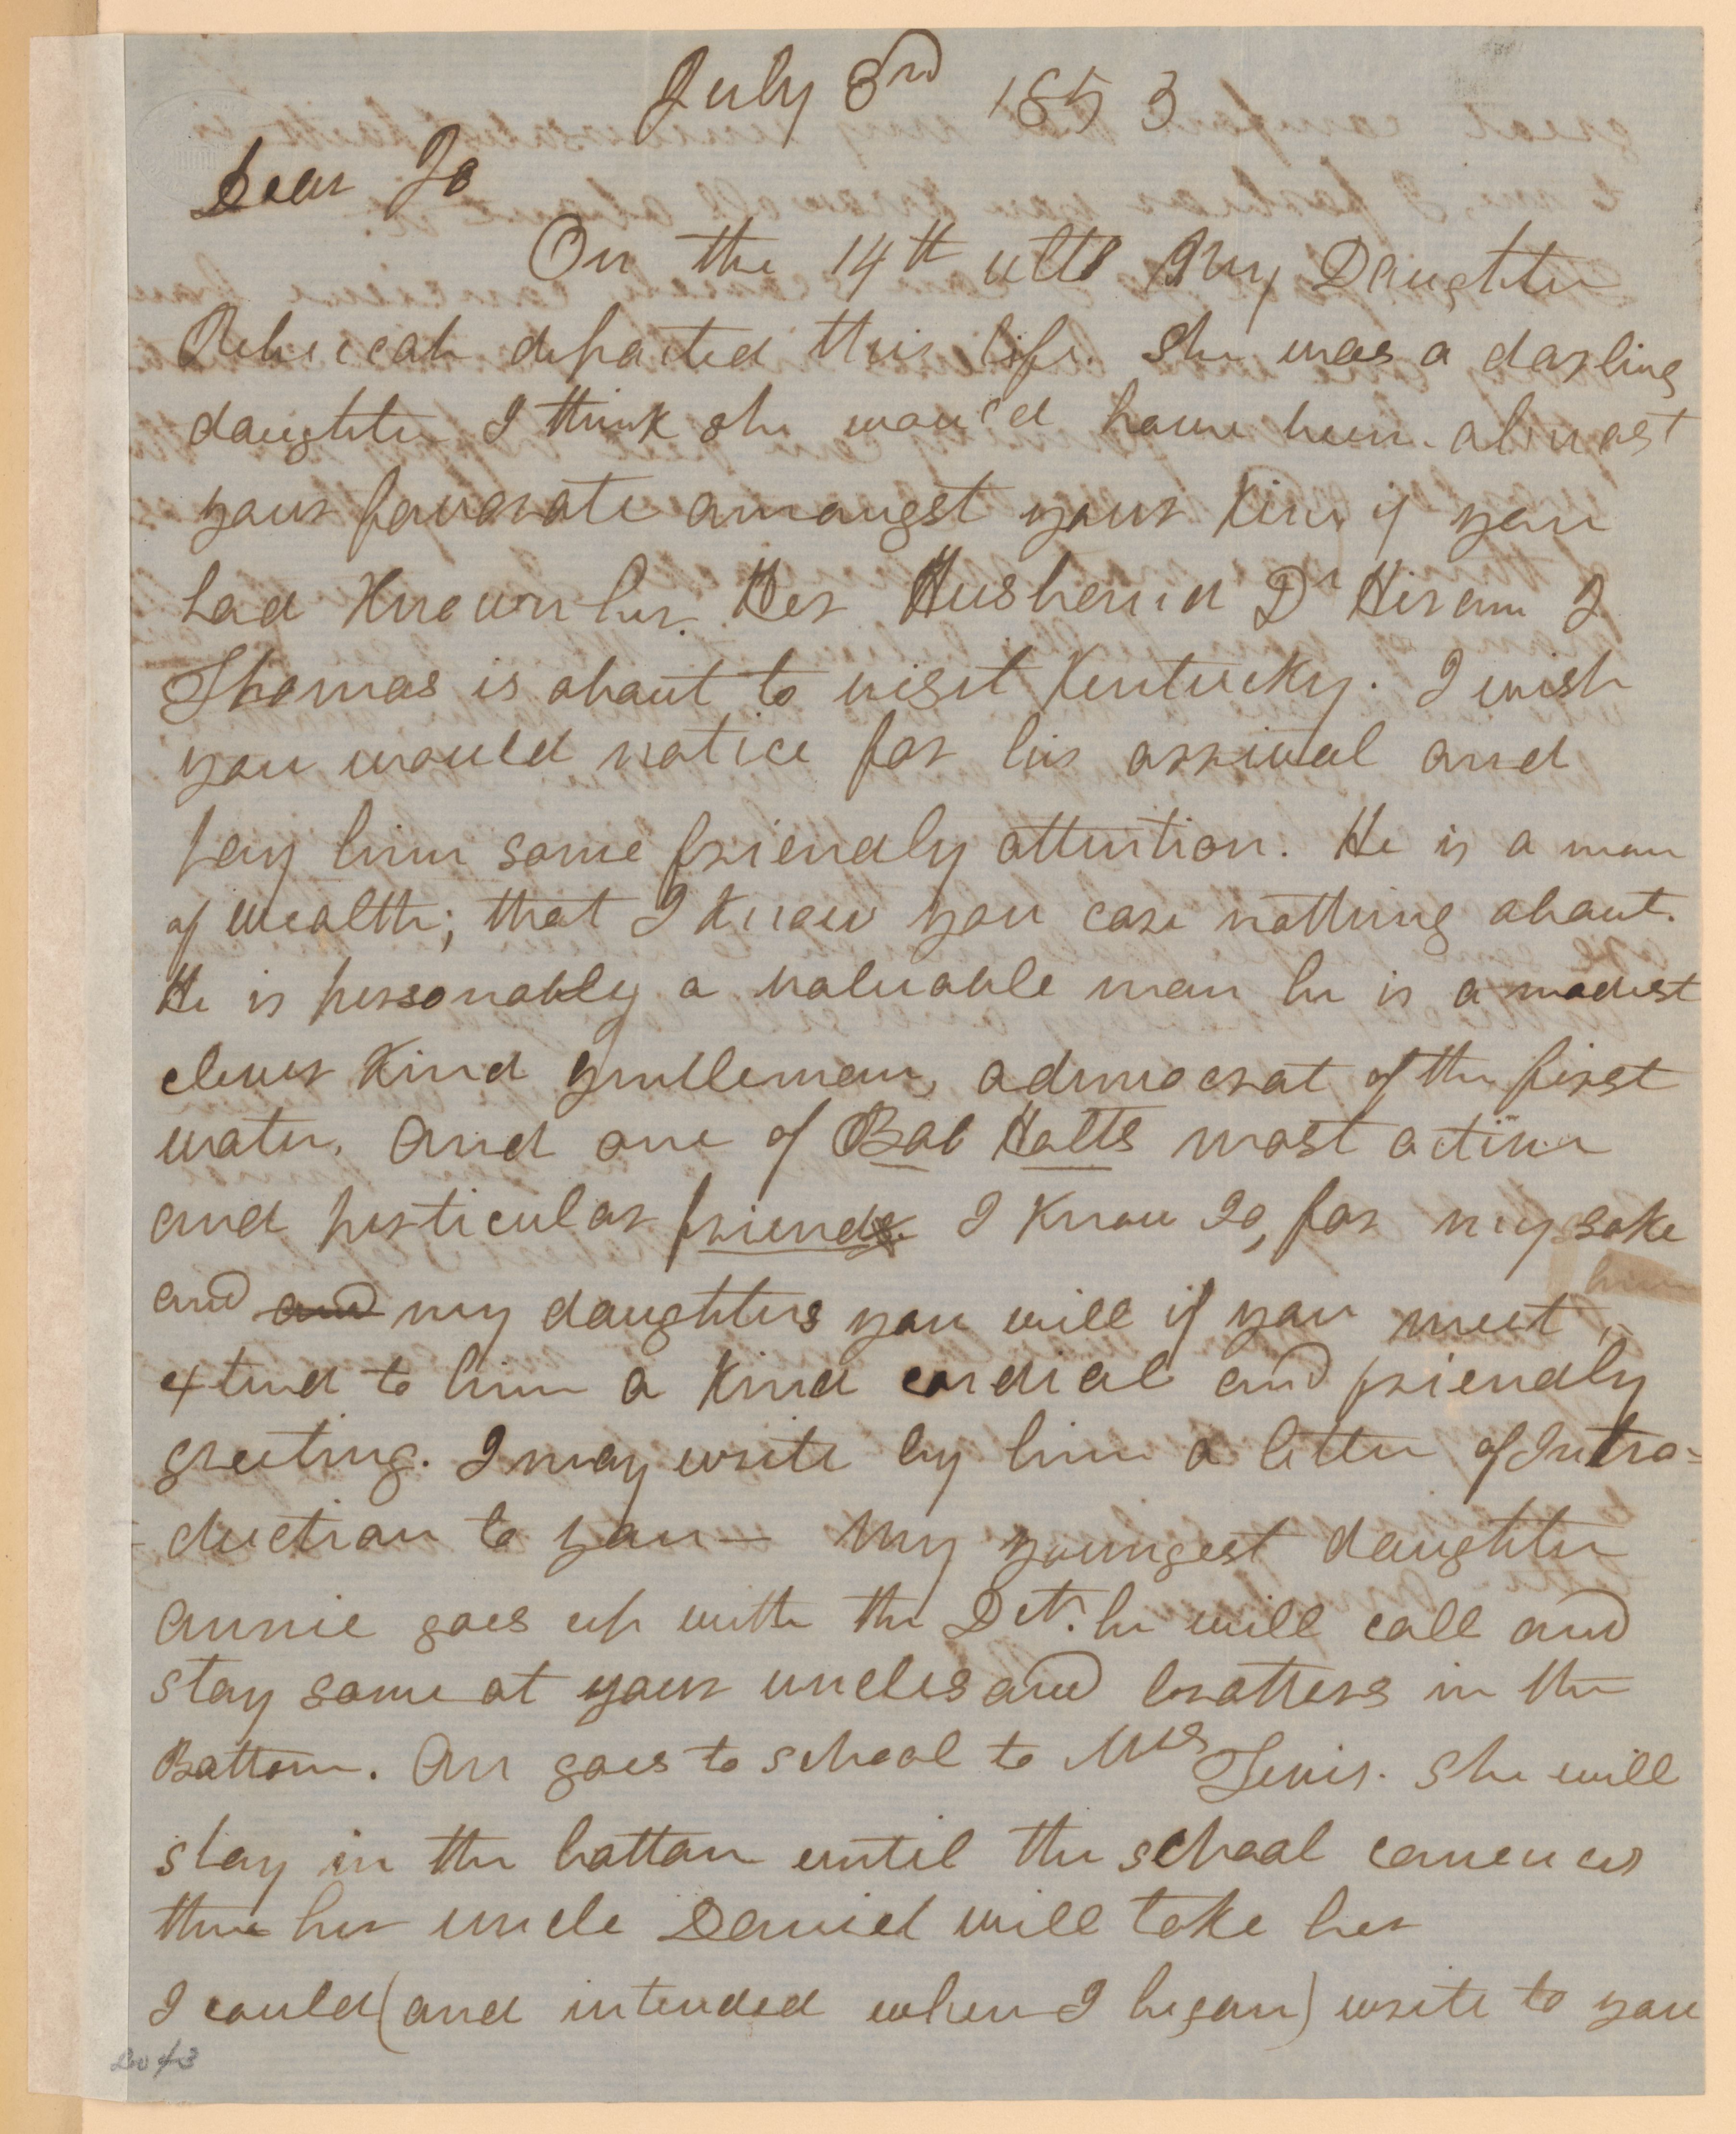 July 3rd 1853
Dear Jo
On the 14th ulto My Daughter
Rebeccah departed this life. She was a darling
daughter I think she would have been almost
your favorate amongst your Kin, if you
had Known her. Her Husband Dr Hiram J.
Thomas is about to visit Kentucky. I wish
you would notice for his arrival and
pay him some friendly attention. He is a man
of wealth; that I Know you care nothing about.
He is personably a valuable man he is a modest
clever Kind gentleman, a democrat of the first
water. And one of Bob Holts most active
and perticular friends. I Know Jo, for my sake
and and my daughters you will if you meet him
extend to him a Kind cordial and friendly
greeting. I may write by him a letter of Intro=
-duction to you — My youngest daughter
Annie goes up with the Dct. he will call and
stay some at your uncles and brothers in the
Bottom. An goes to school to Mrs Tevis. She will
stay in the bottom until the school comences
then her uncle Daniel will take her
I could (and intended when I began) write to you